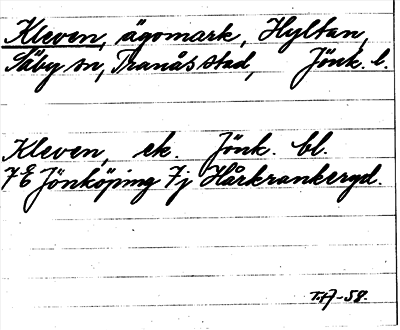 Kleven, ägomark, Hyltan,
Säby sn, Tranås stad, Jönk. l.
Kleven, ek. Jönk. bl.
7E Jönköping 7j Hårkrankergd.
T.H.-58.